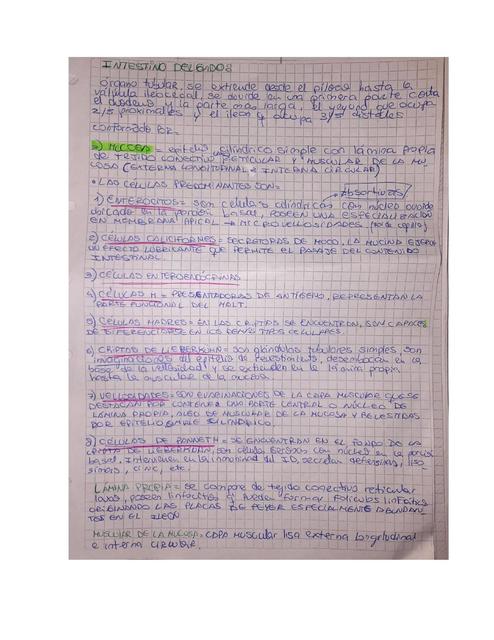 INTESTINO DELGADO:
órgano tubular, se extiende desde el píloro hasta la
válvula ileocecal, se divide en una primera parte corta
el duodeno y la parte mas larga, el yeyuno que ocupa
2/5 proximales y el ileon q ocupa 3/5 distales
conformado por:
a) MUCOSA = epitelio cilíndrico simple con lámina propia
de TEJIDO CONECTIVO RETICULAR Y MUSCULAR DE LA MU
COSA (EXTERNA LONGITUDINAL E INTERNA CIRCULAR)
• LAS CELULAS PREDOMINANTES SON:
→ Absortivas
1) ENTEROCITOS = son celulas cilindricas con núcleo ovoide
ubicado en la porción basal, POSEEN UNA ESPECIALIZACIÓN
EN MEMBRANA APICAL → MICROVELLOSIDADES
2) CÉLULAS CALICIFORMES = SECRETORAS DE MOCO, LA MUCINA EJERCE
UN EFECTO LUBRICANTE QUE PERMITE EL PASAJE DEL CONTENIDO
INTESTINAL.
3) CÉLULAS ENTEROENDÓCRINAS
4) CÉLULAS M = PRESENTADORAS DE ANTÍGENO, REPRESENTAN LA
PARTE FUNCIONAL DEL MALT.
5) CÉLULAS MADRES = EN LAS CRIPTAS SE ENCUENTRAN, SON CAPACES
DE DIFERENCIARSE EN LOS DEMÁS TIPOS CELULARES.
6) CRIPTAS DE LIEBERKUHN = son glándulas tubulares simples, son
invaginaciones del epitelio de revestimiento, desembocan en la
base de la vellosidad y se extienden en la lámina propia
hasta la muscular de la mucosa.
7) VELLOSIDADES = SON EVAGINACIONES DE LA CAPA MUSCULAR QUE SE
DESTACAN POR CONTENER UNA PARTE CENTRAL O NÚCLEO DE
LÁMINA PROPIA, ALGO DE MUSCULAR DE LA MUCOSA Y REVESTIDAS
POR EPITELIO SIMPLE CILÍNDRICO.
8) CÉLULAS DE PANNETH = SE ENCUENTRAN EN EL FONDO DE LA
CRIPTA DE LIEBERKUHN, son células con núcleo en la porción
basal, Intervienen en la inmunidad del ID, secretan defensinas, liso
simas, cinc, etc.
LÁMINA PROPIA = se compone de tejido conectivo reticular
laxo, poseen linfocitos q pueden formar folículos linfoides
ORIGINANDO LAS PLACAS DE PEYER ESPECIALMENTE ABUNDAN
TES EN EL ILEÓN
MUSCULAR DE LA MUCOSA = CAPA muscular lisa externa longitudinal
e interna CIRCULAR.